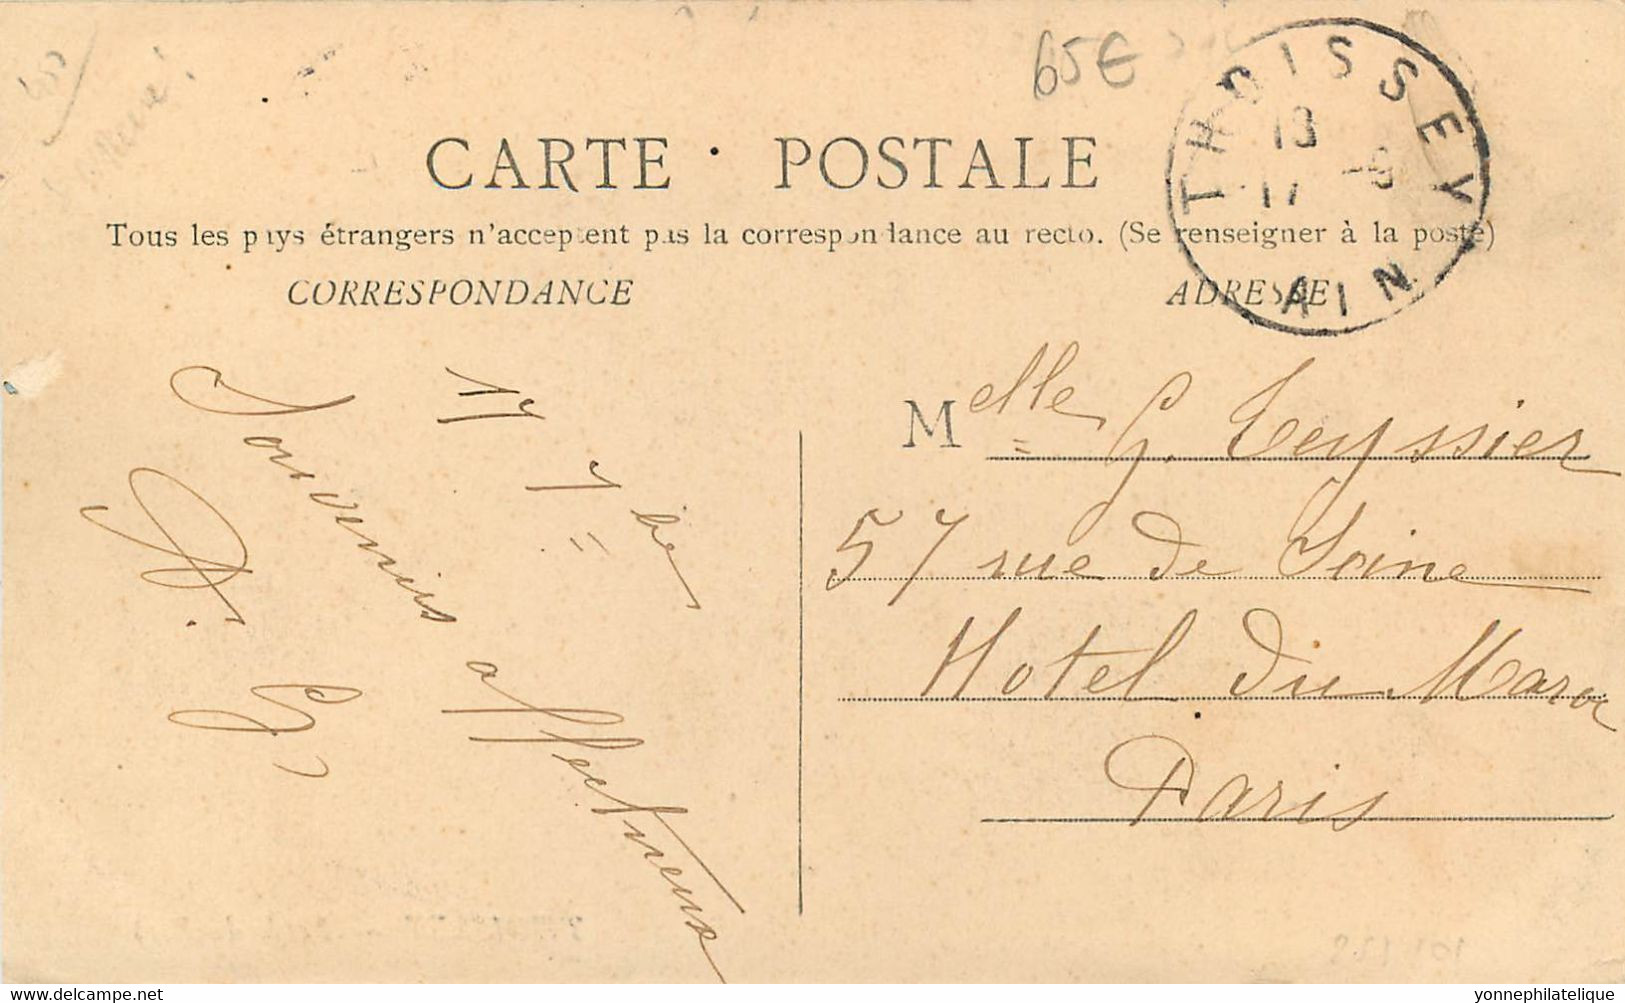 65€
THOISSEY
13
17 -9
AIN
CARTE POSTALE
Tous les pays étrangers n'acceptent pas la correspondance au recto. (Se renseigner à la poste)
CORRESPONDANCE
ADRESSE
17 7bre
Souvenirs affectueux
Melle G. Teyssier
57 rue de Seine
Hotel du Maroc
Paris
yonnephilatelique